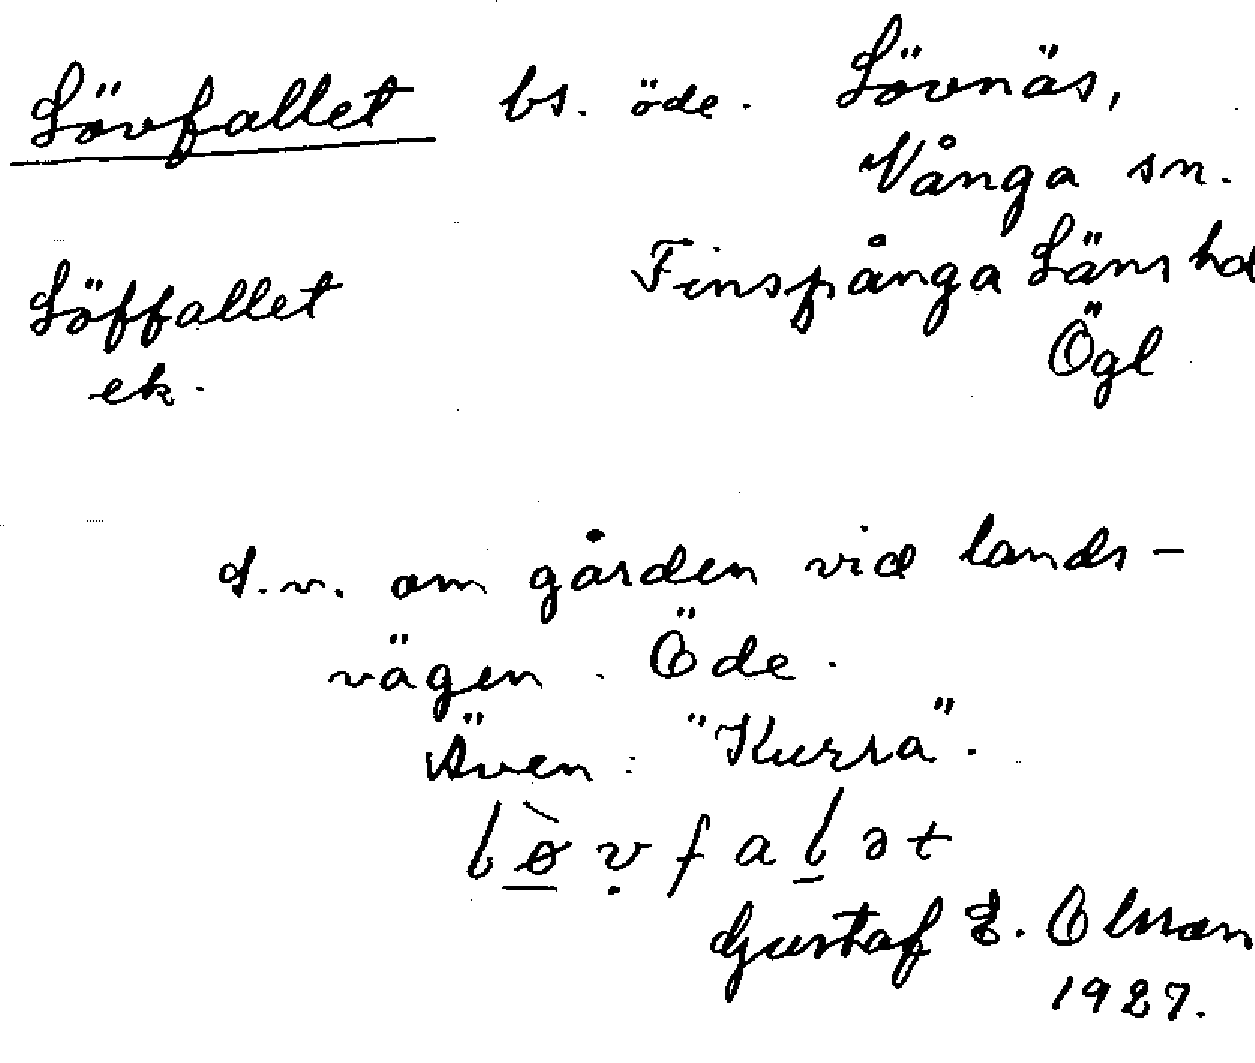 Lövfallet bs. öde. Lövnäs,
Vånga sn.
Finspånga Läns hd
Ögl
Löffallet
ek.
d.v. om gården vid lands-
vägen. Öde.
Även: "Kurra".
lø̀ṿfalət
Gustaf E. Olsson
1927.